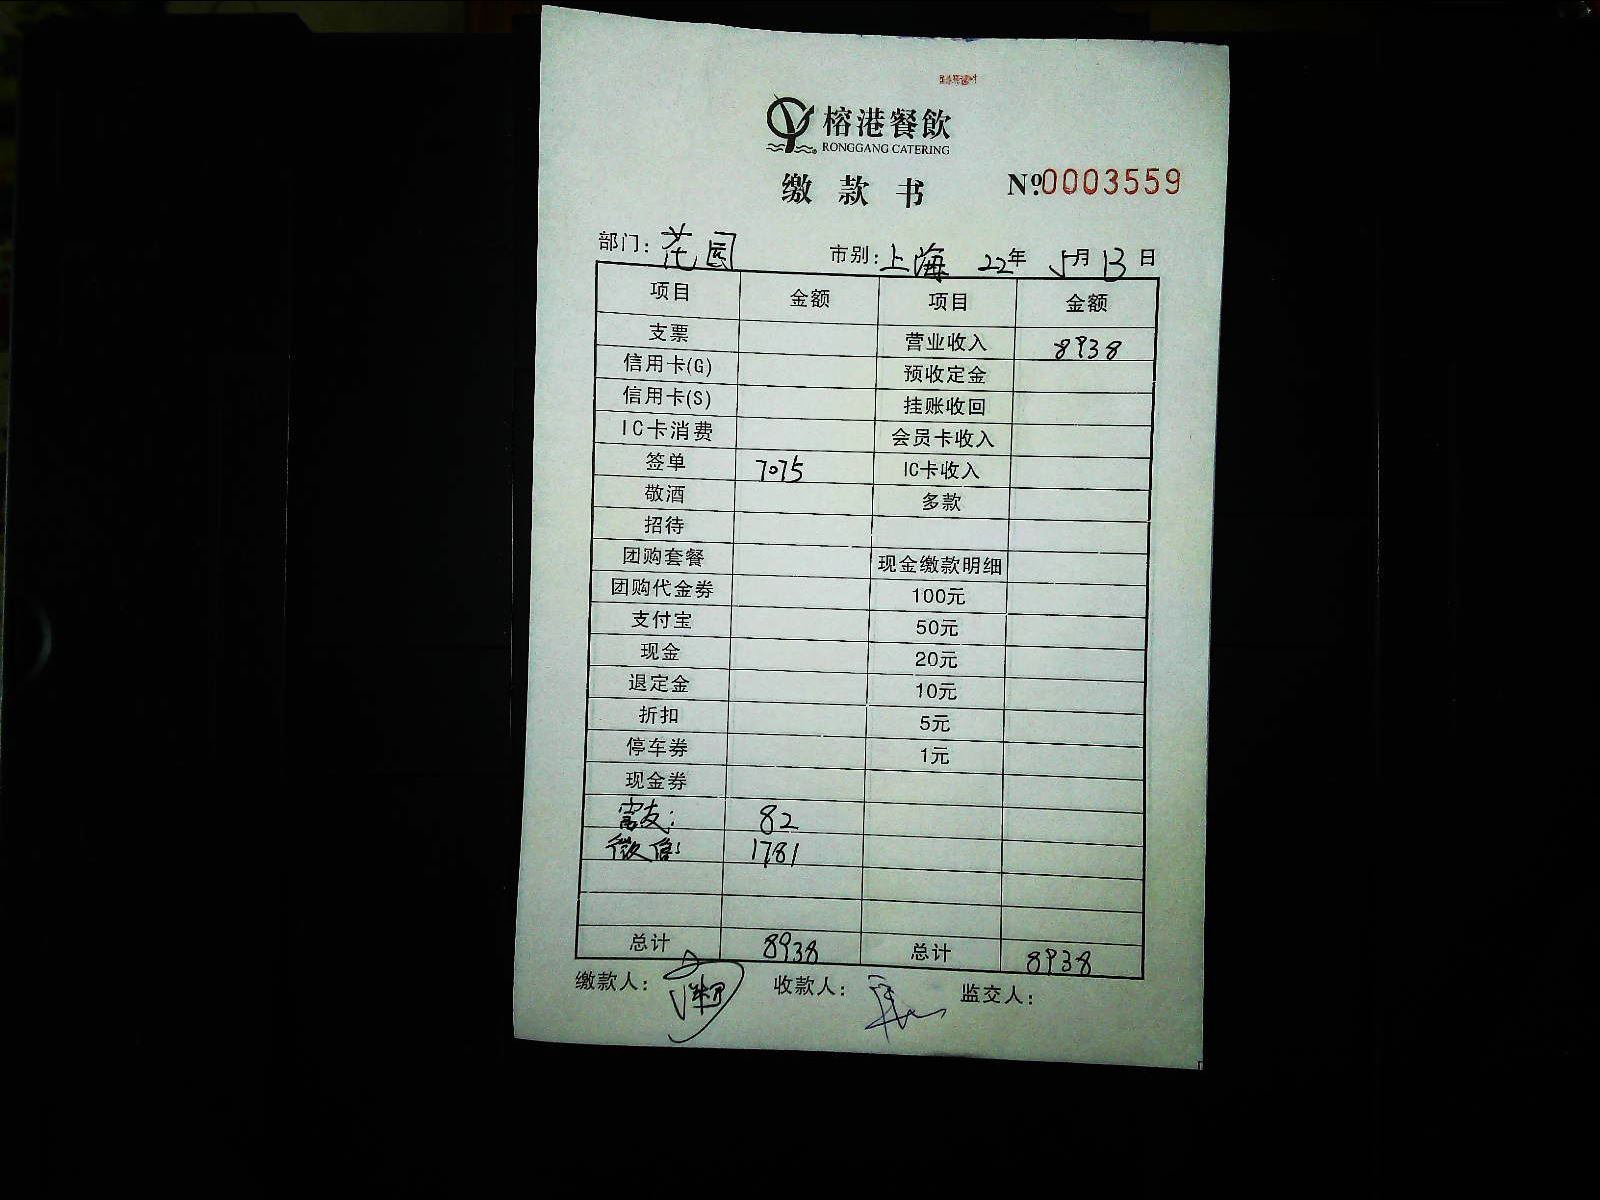 榕港餐飲
RONGGANG CATERING
缴款书 №0003559
部门: 花园 市别: 上海 22年 5月 13日
项目 金额 项目 金额
支票 营业收入 8938
信用卡(G) 预收定金
信用卡(S) 挂账收回
IC卡消费 会员卡收入
签单 7075 IC卡收入
敬酒 多款
招待
团购套餐 现金缴款明细
团购代金券 100元
支付宝 50元
现金 20元
退定金 10元
折扣 5元
停车券 1元
现金券
82
微信: 1781
总计 8938 总计 8938
缴款人: 收款人: 监交人: